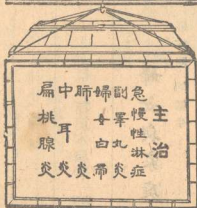 主治
急慢性淋症
副睪丸炎
婦女白帶
肺炎
中耳炎
扁桃腺炎